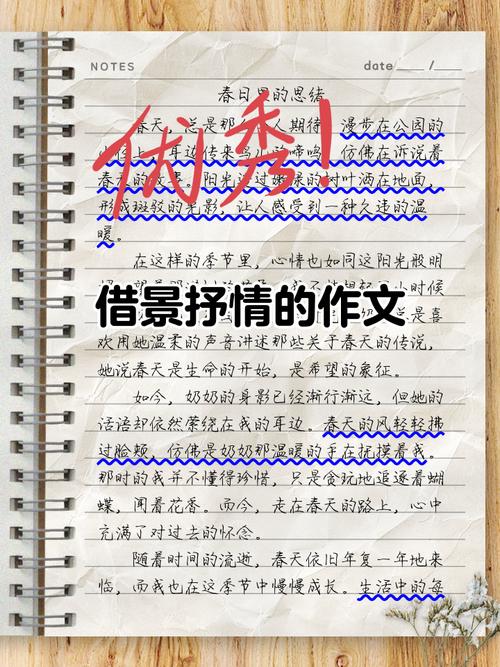 NOTES
date ____ / ____
春日里的思绪
优秀!
春天,总是那 人期待 漫步在公园的
小径上 耳边传来鸟儿 啼鸣 仿佛在诉说着
春天的故事。阳光 过嫩绿的树叶洒在地面,
形成斑驳的光影,让人感受到一种久违的温
暖。
在这样的季节里,心情也如同这阳光般明
小时候
借景抒情的作文
是喜
欢用她温柔的声音讲述那些关于春天的传说,
她说春天是生命的开始,是希望的象征。
如今,奶奶的身影已经渐行渐远,但她的
话语却依然萦绕在我的耳边。春天的风轻轻拂
过脸颊,仿佛是奶奶那温暖的手在抚摸着我。
那时的我并不懂得珍惜,只是贪玩地追逐着蝴
蝶,闻着花香。而今,走在春天的路上,心中
充满了对过去的怀念。
随着时间的流逝,春天依旧年复一年地来
临,而我也在这季节中慢慢成长。生活中的每